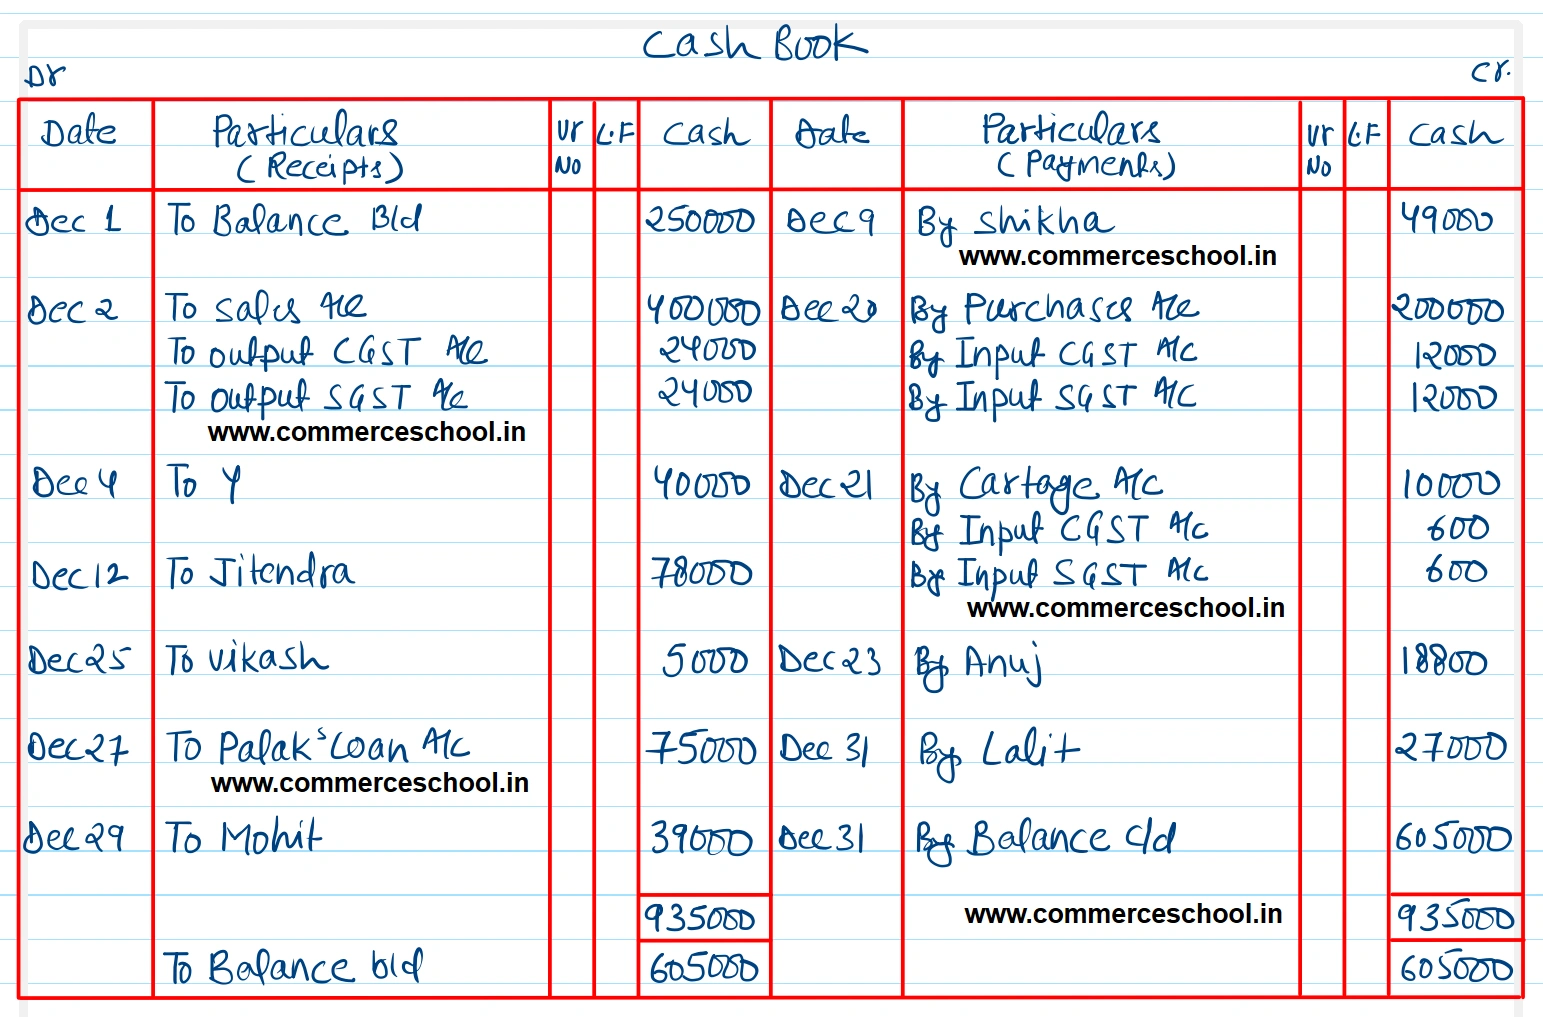 Cash Book
Dr Cr.
Date Particulars Vr L.F Cash Date Particulars Vr L.F Cash
(Receipts) No (Payments) No
Dec 1 To Balance B/d 250000 Dec 9 By Shikha 49000
www.commerceschool.in
Dec 2 To Sales A/c 400000 Dec 20 By Purchases A/c 200000
To output CGST A/c 24000 By Input CGST A/c 12000
To output SGST A/c 24000 By Input SGST A/c 12000
www.commerceschool.in
Dec 4 To Y 40000 Dec 21 By Cartage A/c 10000
By Input CGST A/c 600
Dec 12 To Jitendra 78000 By Input SGST A/c 600
www.commerceschool.in
Dec 25 To Vikash 5000 Dec 23 By Anuj 18800
Dec 27 To Palak's Loan A/c 75000 Dec 31 By Lalit 27000
www.commerceschool.in
Dec 29 To Mohit 39000 Dec 31 By Balance c/d 605000
935000 www.commerceschool.in 935000
To Balance b/d 605000 605000